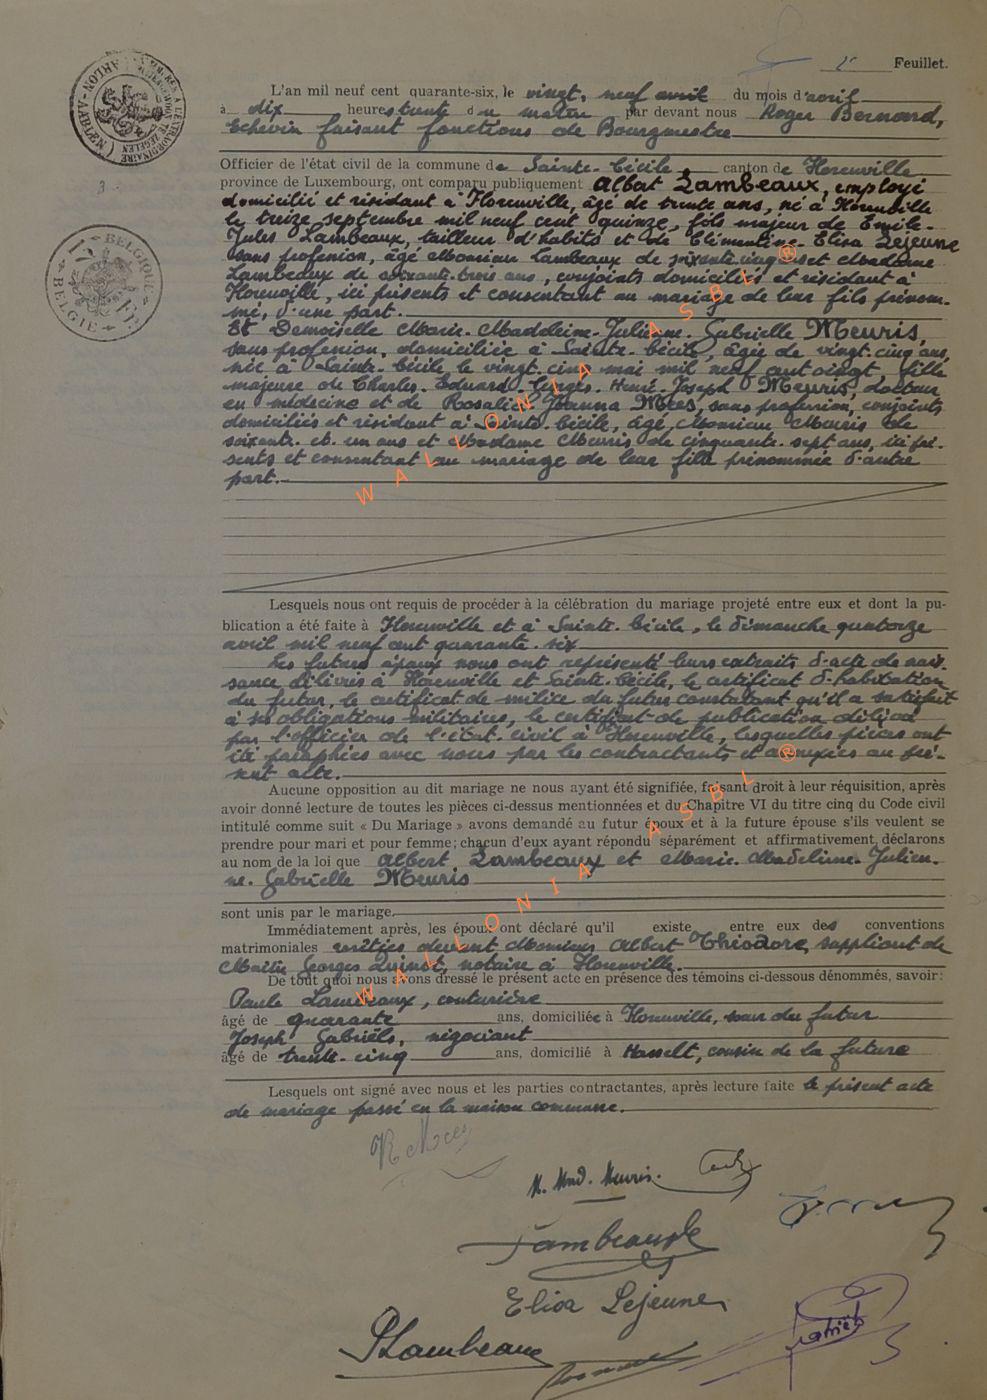 Feuillet.
L'an mil neuf cent quarante-six, le vingt-neuf avril du mois d'avril
à dix heures trente du matin par devant nous Roger Bernard,
Echevin faisant fonctions de Bourgmestre
Officier de l'état civil de la commune de Sainte-Cécile, canton de Florenville
province de Luxembourg, ont comparu publiquement Albert Lambeaux, employé
domicilié et résidant à Florenville, âgé de trente ans, né à Florenville
le treize septembre mil neuf cent quinze, fils majeur de Emile-
Jules Lambeaux, tailleur d'habits et de Clémentine-Elisa Lejeune
sans profession, âgé Monsieur Lambeaux de soixante et Madame
Lambeaux de soixante-trois ans, conjoints domiciliés et résidant à
Florenville, ici présents et consentant au mariage de leur fils prénom-
mé, d'une part.
Et Demoiselle Marie-Madeleine-Julienne-Gabrielle Meuris,
sans profession, domiciliée à Sainte-Cécile, âgée de vingt-cinq ans,
née à Sainte-Cécile le vingt-cinq mai mil neuf cent vingt, fille
majeure de Charles-Eduard-Georges-Henri-Joseph Meuris, docteur
en médecine et de Rosalie-Joanna Mees, sans profession, conjoints
domiciliés et résidant à Sainte-Cécile, âgé, Monsieur Meuris de
soixante-et-un ans et Madame Meuris de cinquante-sept ans, ici pré-
sents et consentant au mariage de leur fille prénommée d'autre
part.
Lesquels nous ont requis de procéder à la célébration du mariage projeté entre eux et dont la pu-
blication a été faite à Florenville et à Sainte-Cécile, le dimanche quatorze
avril mil neuf cent quarante-six
Les futurs époux nous ont représenté leurs extraits d'acte de nais-
sance délivrés à Florenville et Sainte-Cécile, le certificat d'habitation
du futur, le certificat de milice du futur constatant qu'il a satisfait
à ses obligations militaires, le certificat de publication délivré
par l'officier de l'état-civil à Florenville, lesquelles pièces ont
été paraphées avec nous par les contractants et annexées au pré-
sent acte.
Aucune opposition au dit mariage ne nous ayant été signifiée, faisant droit à leur réquisition, après
avoir donné lecture de toutes les pièces ci-dessus mentionnées et du Chapitre VI du titre cinq du Code civil
intitulé comme suit « Du Mariage » avons demandé au futur époux et à la future épouse s'ils veulent se
prendre pour mari et pour femme; chacun d'eux ayant répondu séparément et affirmativement, déclarons
au nom de la loi que Albert Lambeaux et Marie-Madeleine-Julien-
ne-Gabrielle Meuris
sont unis par le mariage.
Immédiatement après, les époux ont déclaré qu'il existe entre eux des conventions
matrimoniales Monsieur Albert Théodore, suppléant de
Maître Georges Quinot, notaire à Florenville.
De tout quoi nous avons dressé le présent acte en présence des témoins ci-dessous dénommés, savoir:
Paule Lambeaux, couturière
âgé de quarante ans, domiciliée à Florenville, sœur du futur
Joseph Gabriëls, négociant
âgé de trente-cinq ans, domicilié à Hasselt, cousin de la future
Lesquels ont signé avec nous et les parties contractantes, après lecture faite le présent acte
de mariage passé en la maison commune.
R Mees
M. Mad. Meuris.
Lambeaux
Elisa Lejeune
PLambeaux
WALLONIA ASBL ®
WALLONIA ASBL ®
BELGIQUE
BELGIE
ARLON-AARLEN